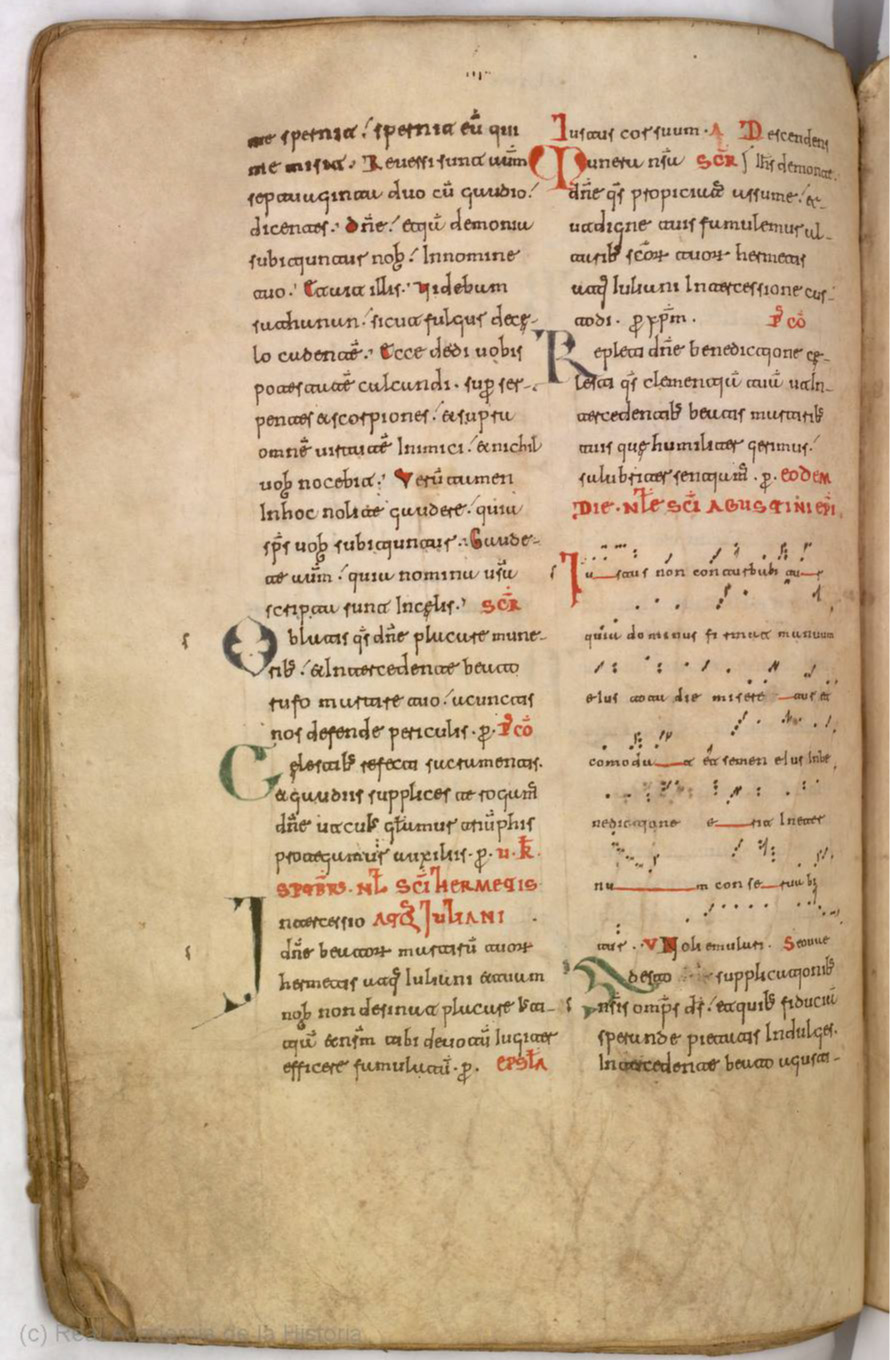 me spernit. spernit eū qui
me misit. Reuersi sunt autm̄
septuaginta duo cū gaudio.
dicentes. Dn̄e. etiā demonia
subiciuntur nob. In nomine
tuo. Et ait illis. Uidebam
sathanan. sicut fulgur de cę-
lo cadentē. Ecce dedi uobis
potestatē calcandi. sup ser-
pentes et scorpiones. et supra
omnē uirtutē Inimici. et nichil
uob nocebit. Verū tamen
In hoc nolite gaudere. quia
sp̄s uob subiciuntur. Gaude-
te autm̄. quia nomina ur̄a
scripta sunt In cęlis. SCR̄
Oblatis q̄s dn̄e placare mune-
rib. et Intercedente beato
rufo martire tuo. a cunctis
nos defende periculis. p. P̄ cō
Celestib refecti sacramentis.
et gaudiis supplices te rogam̄
dn̄e ut quor̄ gl̄amur triūphis
protegamur auxiliis. p. u. k̄.
SPTBR̄S. NL̄ SC̄I hERMETIS
Intercessio ATQ JULIANI
dn̄e beator martirū tuor
hermetis atq Iuliani et tuam
nob non desinat placare Ius-
titiā et nr̄m tibi deuotū Iugiter
efficere famulatū. p. EPSTLA
Iustus cor suum. A Descendens
Munera nr̄a SCR̄ Ih̄s de monte.
dn̄e q̄s propiciatus assume. et
ut digne tuis famulemur al-
tarib scōr tuor hermetis
atq Iuliani Intercessione cus-
todi. p xp̄m. P̄ cō
Repleti dn̄e benedictione cę-
lesti q̄s clementiā tuā ut In-
tercedentib beatis martirib
tuis quę humiliter gerimus.
salubriter sentiam̄. p. EODEM
DIE. NL̄E SC̄I AGUSTINI EPI
Iu stus non conturbabi tu r
quia dominus firmat manum
eius tota die misere tur et
comoda t et semen eius In be
nedictione e rit In eter
nu m conse ruabi
tur. V Noli emulari. S Seruite
Adesto supplicationib
nr̄is omps dˢ. et quib fiduciā
sperande pietatis Indulges.
Intercedente beato agusti-
(c) Real Academia de la Historia